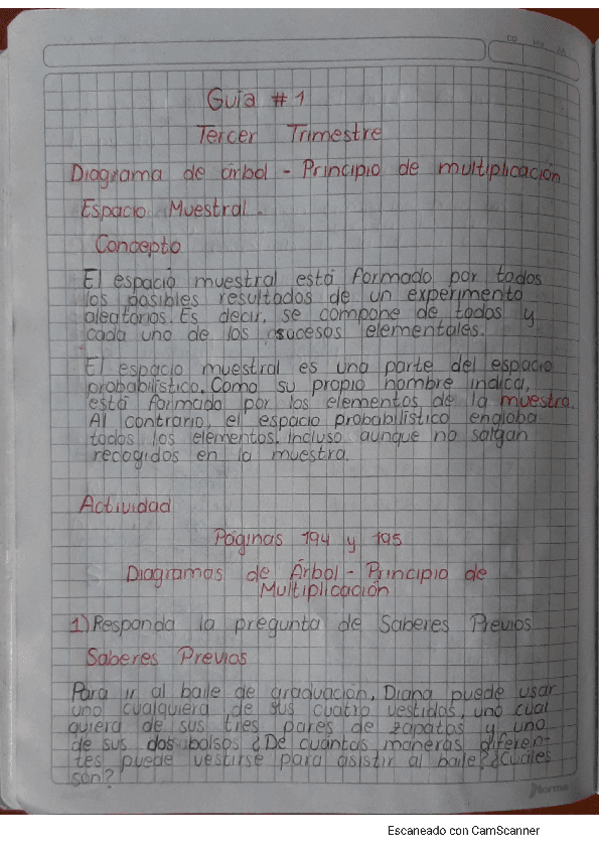 Guia # 1
Tercer Trimestre
Diagrama de árbol - Principio de multiplicación
Espacio Muestral.
Concepto
El espacio muestral está formado por todos
los posibles resultados de un experimento
aleatorios. Es decir, se compone de todos y
cada uno de los sucesos elementales.
El espacio muestral es una parte del espacio
probabilístico. Como su propio nombre indica,
está formado por los elementos de la muestra.
Al contrario, el espacio probabilístico engloba
todos los elementos. Incluso aunque no salgan
recogidos en la muestra.
Actividad
Páginas 194 y 195
Diagramas de Árbol - Principio de
Multiplicación
1) Responda la pregunta de Saberes Previos
Saberes Previos
Para ir al baile de graduación, Diana puede usar
uno cualquiera de sus cuatro vestidos, uno cual
quiera de sus tres pares de zapatos y uno
de sus dos bolsos ¿De cuántas maneras diferen-
tes puede vestirse para asistir al baile? ¿Cuáles
son?
Norma
Escaneado con CamScanner